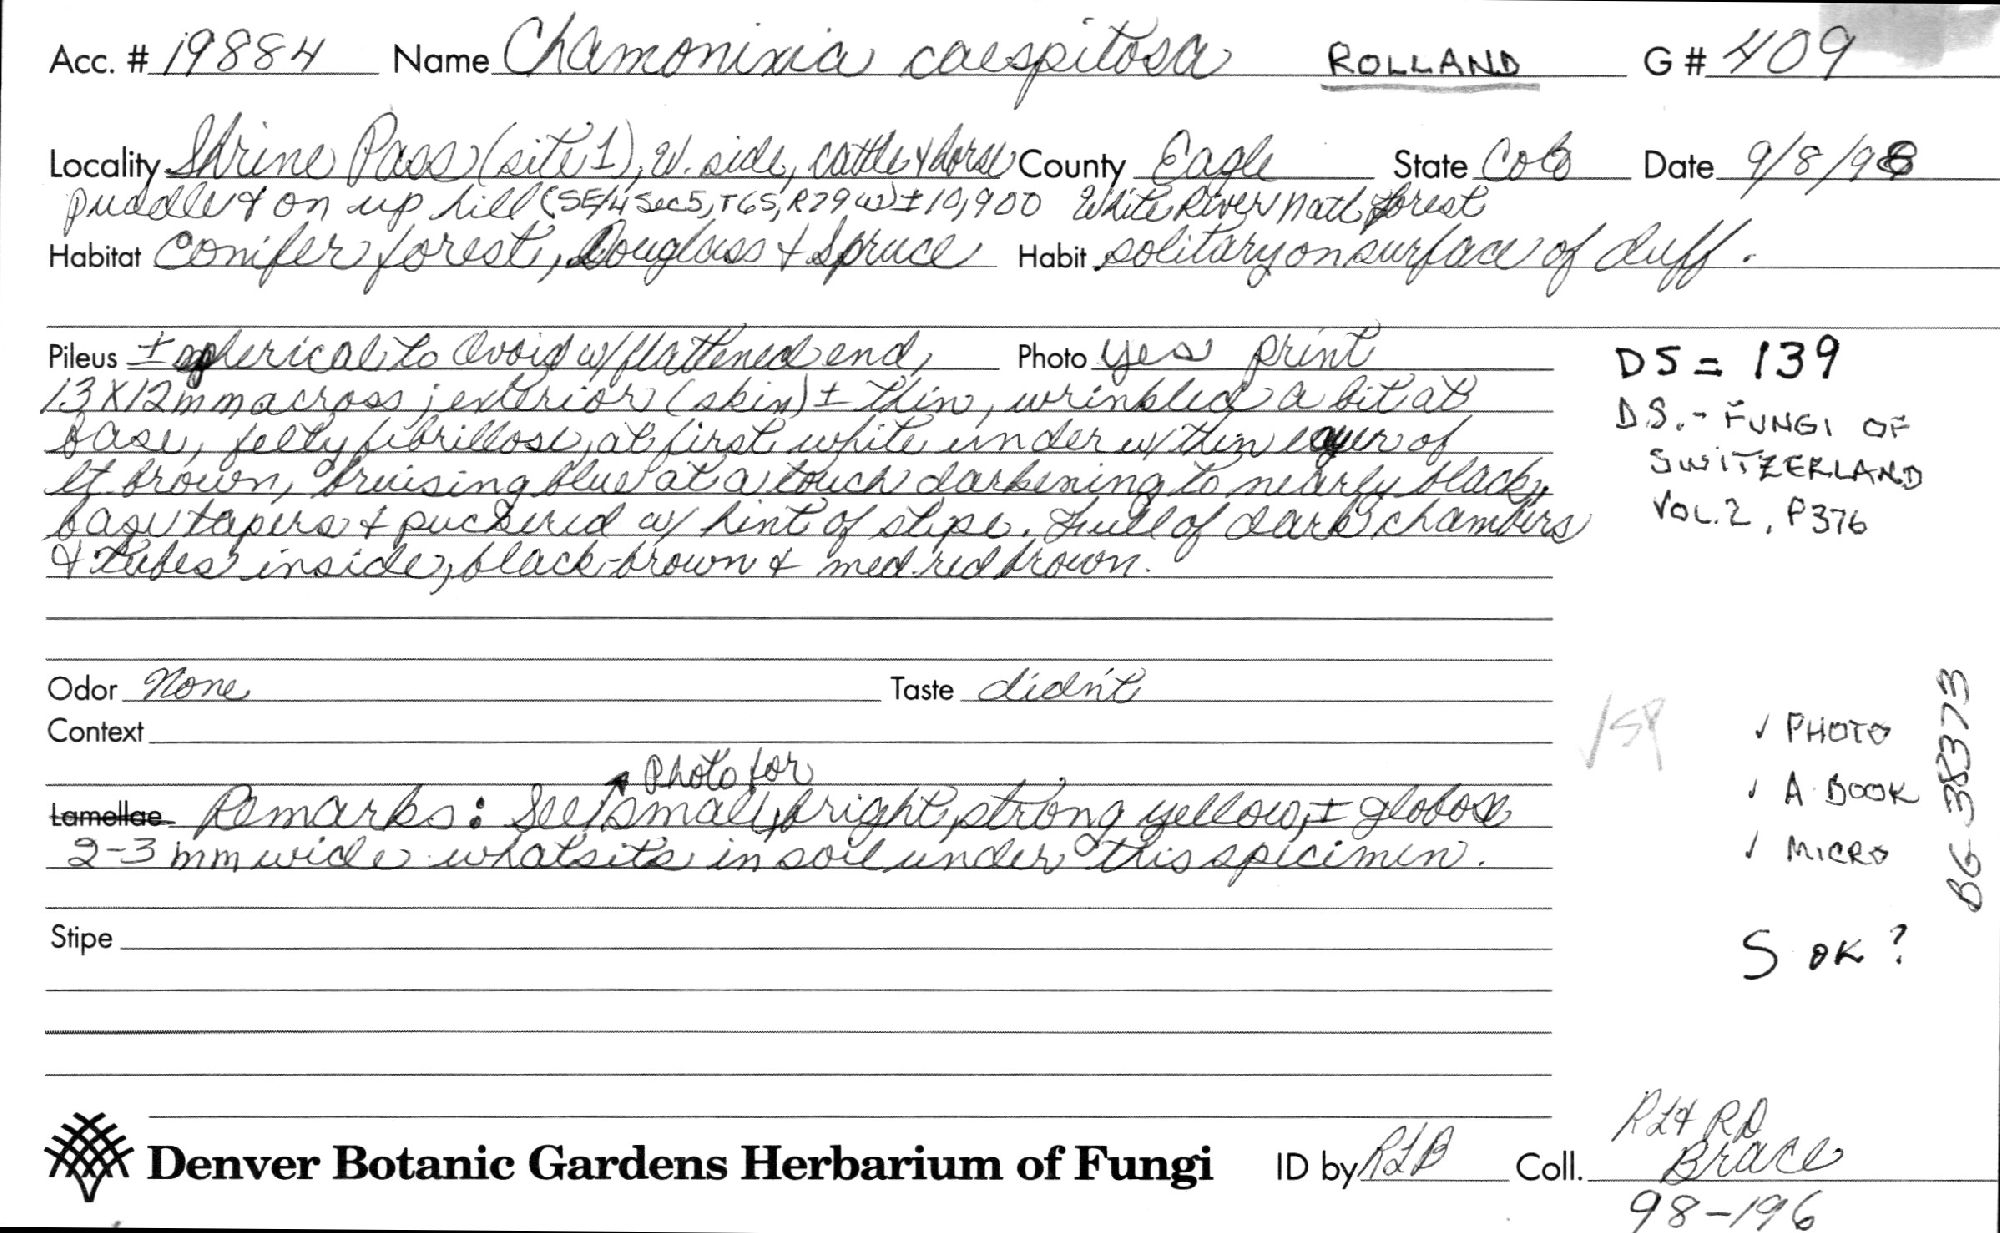 Acc. # 19884 Name Chamonixia caespitosa ROLLAND G # 409
Locality Shrine Pass (site 1), W. side, cattle & horse County Eagle State Colo Date 9/8/98
puddle & on up hill (SE/4 Sec 5, T6S, R79W) ± 10,900 White River Natl Forest
Habitat Conifer forest, Douglass & Spruce Habit solitary on surface of duff.
Pileus ± spherical to Ovoid w/ flattened end, Photo yes print
13 X 12 mm across; exterior (skin) ± thin, wrinkled a bit at
base, felty fibrillose, at first white under w/ thin layer of
lt. brown, bruising blue at a touch darkening to nearly black,
base tapers & puckered w/ hint of stipe. Full of dark chambers
& tubes inside, black-brown & med. red brown.
DS = 139
DS. - FUNGI OF
SWITZERLAND
VOL. 2, P376
Odor None Taste didn't
Context
Lamellae Remarks: See photo for small, bright, strong yellow, ± globose
2-3 mm wide whatsits in soil under this specimen.
Stipe
✓ PHOTO
✓ A BOOK
✓ MICRO
BG 38373
S OK?
Denver Botanic Gardens Herbarium of Fungi ID by RLB Coll. RL & RD
Brace
98-196